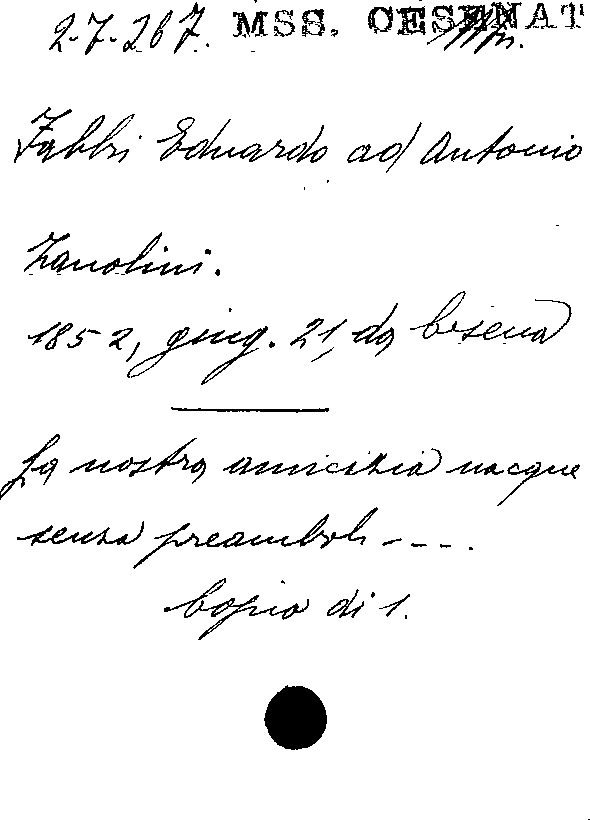 2-7-267. MSS. CESENAT
Fabbri Eduardo ad Antonio
Zanolini.
1852, giug. 21, da Cesena
La nostra amicizia nacque
senza preamboli ----.
Copia di l.